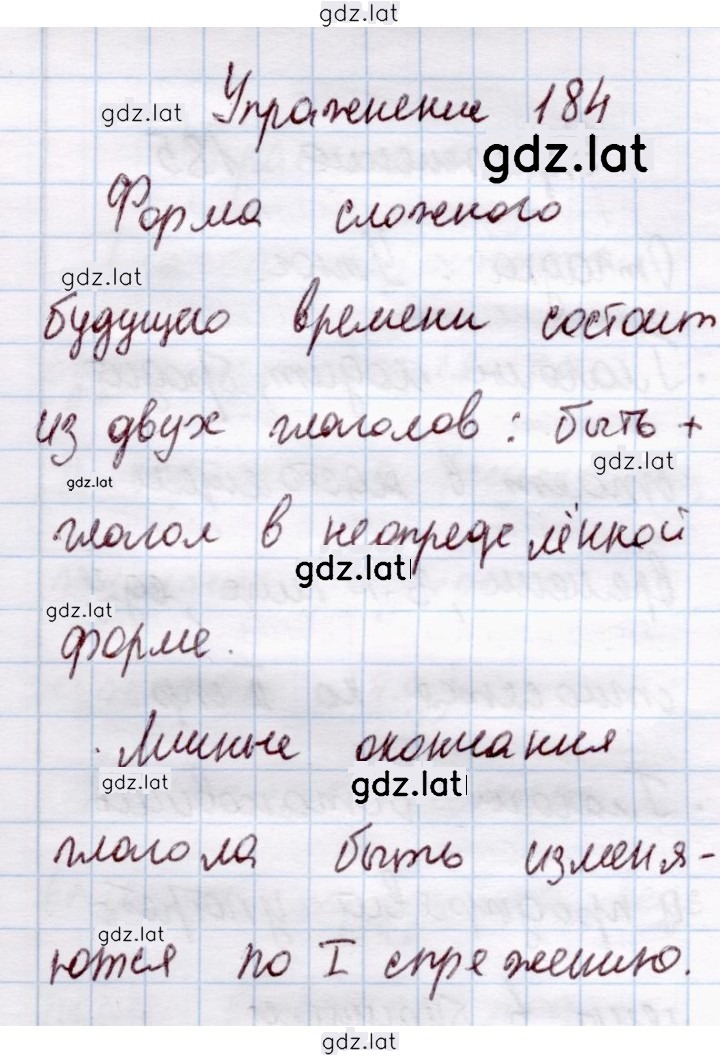 gdz.lat
Упражнение 184
gdz.lat
gdz.lat
Форма сложного
gdz.lat
будущего времени состоит
из двух глаголов: быть +
gdz.lat
gdz.lat
глагол в неопределённой
gdz.lat
gdz.lat
форме.
Личные окончания
gdz.lat
gdz.lat
глагола быть изменя-
gdz.lat
ются по I спряжению.
gdz.lat